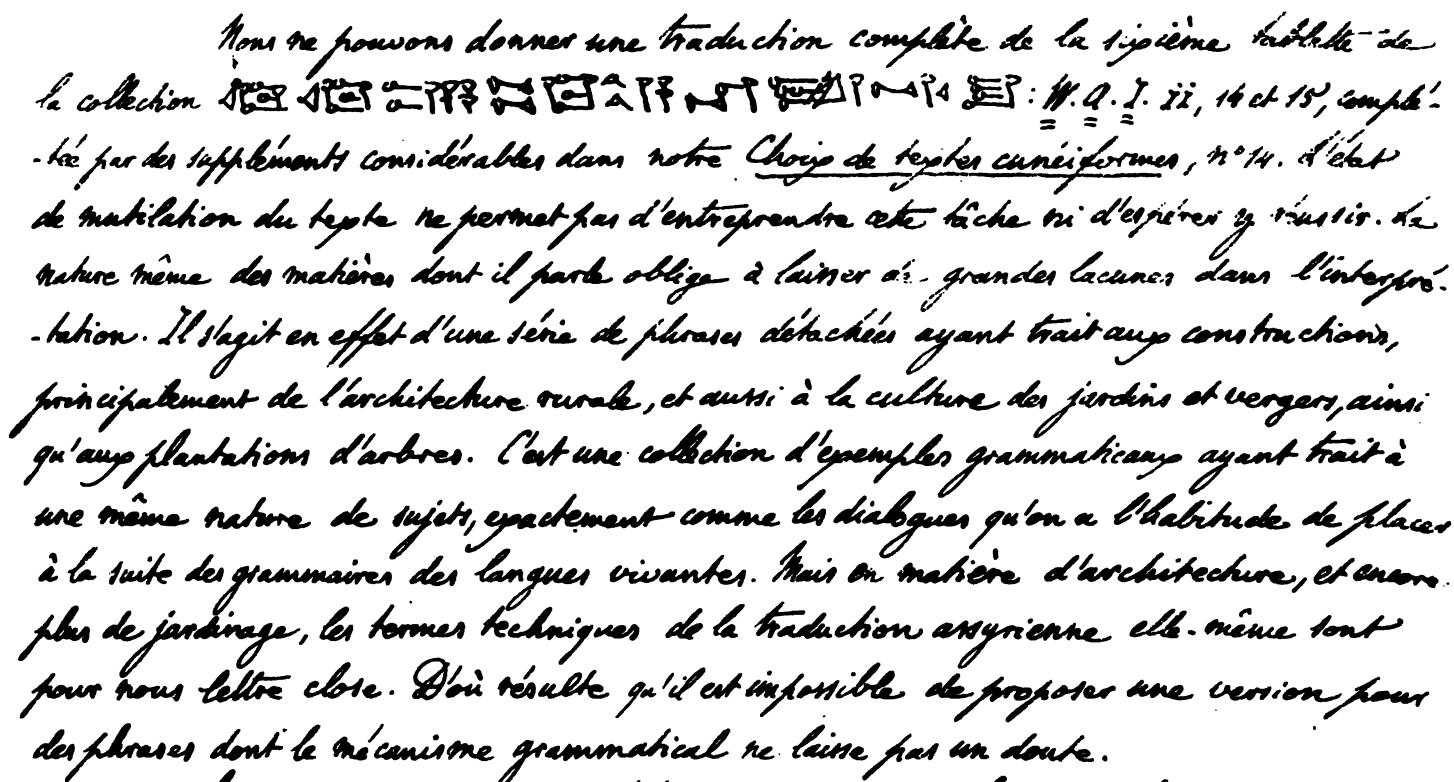 Nous ne pouvons donner une traduction complète de la sixième tablette de
la collection : W. A. I. II, 14 et 15, complé-
-tée par des suppléments considérables dans notre Choix de textes cunéiformes, n° 14. L'état
de mutilation du texte ne permet pas d'entreprendre cette tâche ni d'espérer y réussir. La
nature même des matières dont il parle oblige à laisser de grandes lacunes dans l'interpré-
-tation. Il s'agit en effet d'une série de phrases détachées ayant trait aux constructions,
principalement de l'architecture rurale, et aussi à la culture des jardins et vergers, ainsi
qu'aux plantations d'arbres. C'est une collection d'exemples grammaticaux ayant trait à
une même nature de sujets, exactement comme les dialogues qu'on a l'habitude de placer
à la suite des grammaires des langues vivantes. Mais en matière d'architecture, et encore
plus de jardinage, les termes techniques de la traduction assyrienne elle-même sont
pour nous lettre close. D'où résulte qu'il est impossible de proposer une version pour
des phrases dont le mécanisme grammatical ne laisse pas un doute.